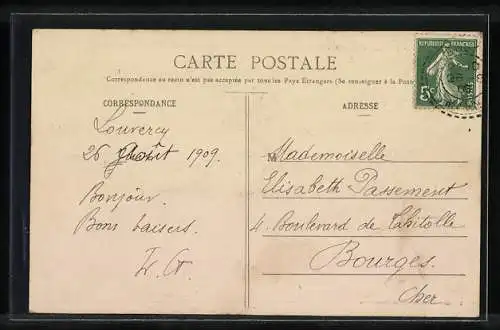 CARTE POSTALE
Correspondance au recto n'est pas acceptée par tous les Pays Étrangers (Se renseigner à la Poste)
REPUBLIQUE FRANÇAISE
5c
POSTES
CORRESPONDANCE
ADRESSE
Louvercy
26 Août 1909.
Bonjour.
Bons baisers.
Mademoiselle
Elisabeth Passement
4. Boulevard de Lahitolle
Bourges.
Cher.